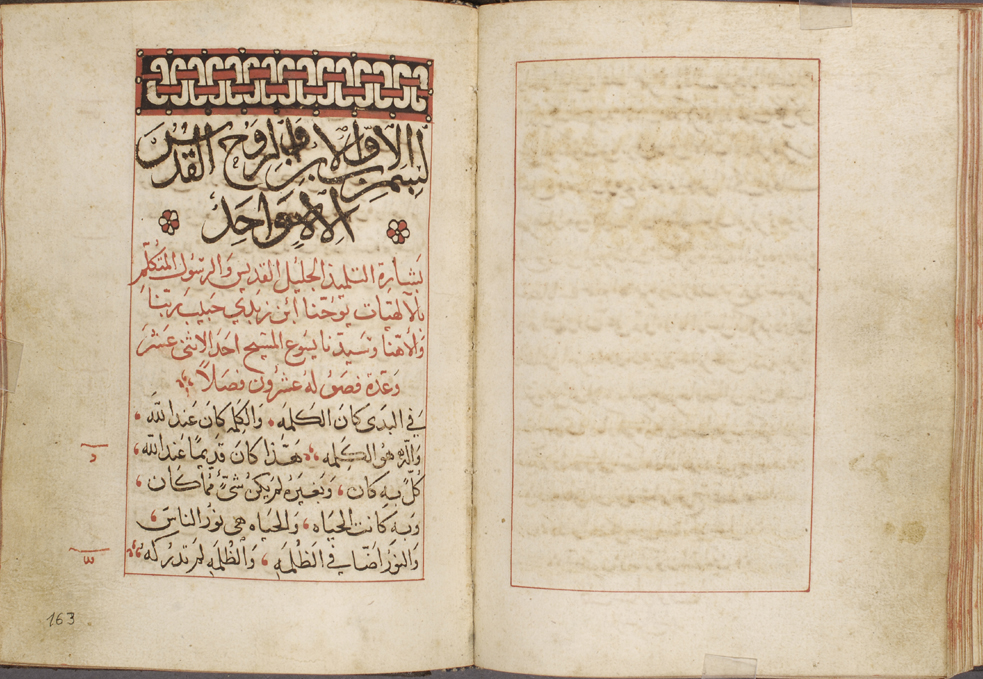 بسم الاب والابن والروح القدس
الاله الواحد
بشارة التلميذ الجليل القديس والرسول المتكلم
بالالهيات يوحنا ابن زبدي حبيب ربنا
والاهنا وسيدنا يسوع المسيح احد الاثنى عشر
وعدة فصوله عشرون فصلاً
في البدى كان الكلمه والكلمه كان عند الله
والله هو الكلمه هذا كان قديمًا عند الله
كلٌ به كان وبغيره لم يكن شئٌ مما كان
وبه كانت الحياه والحياه هى نور الناس
والنور اضا في الظلمه والظلمه لم تدركه
163